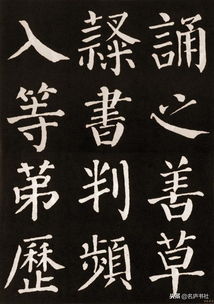 誦之善草
隸書判頻
入等苐歷
头条 @名庐书社